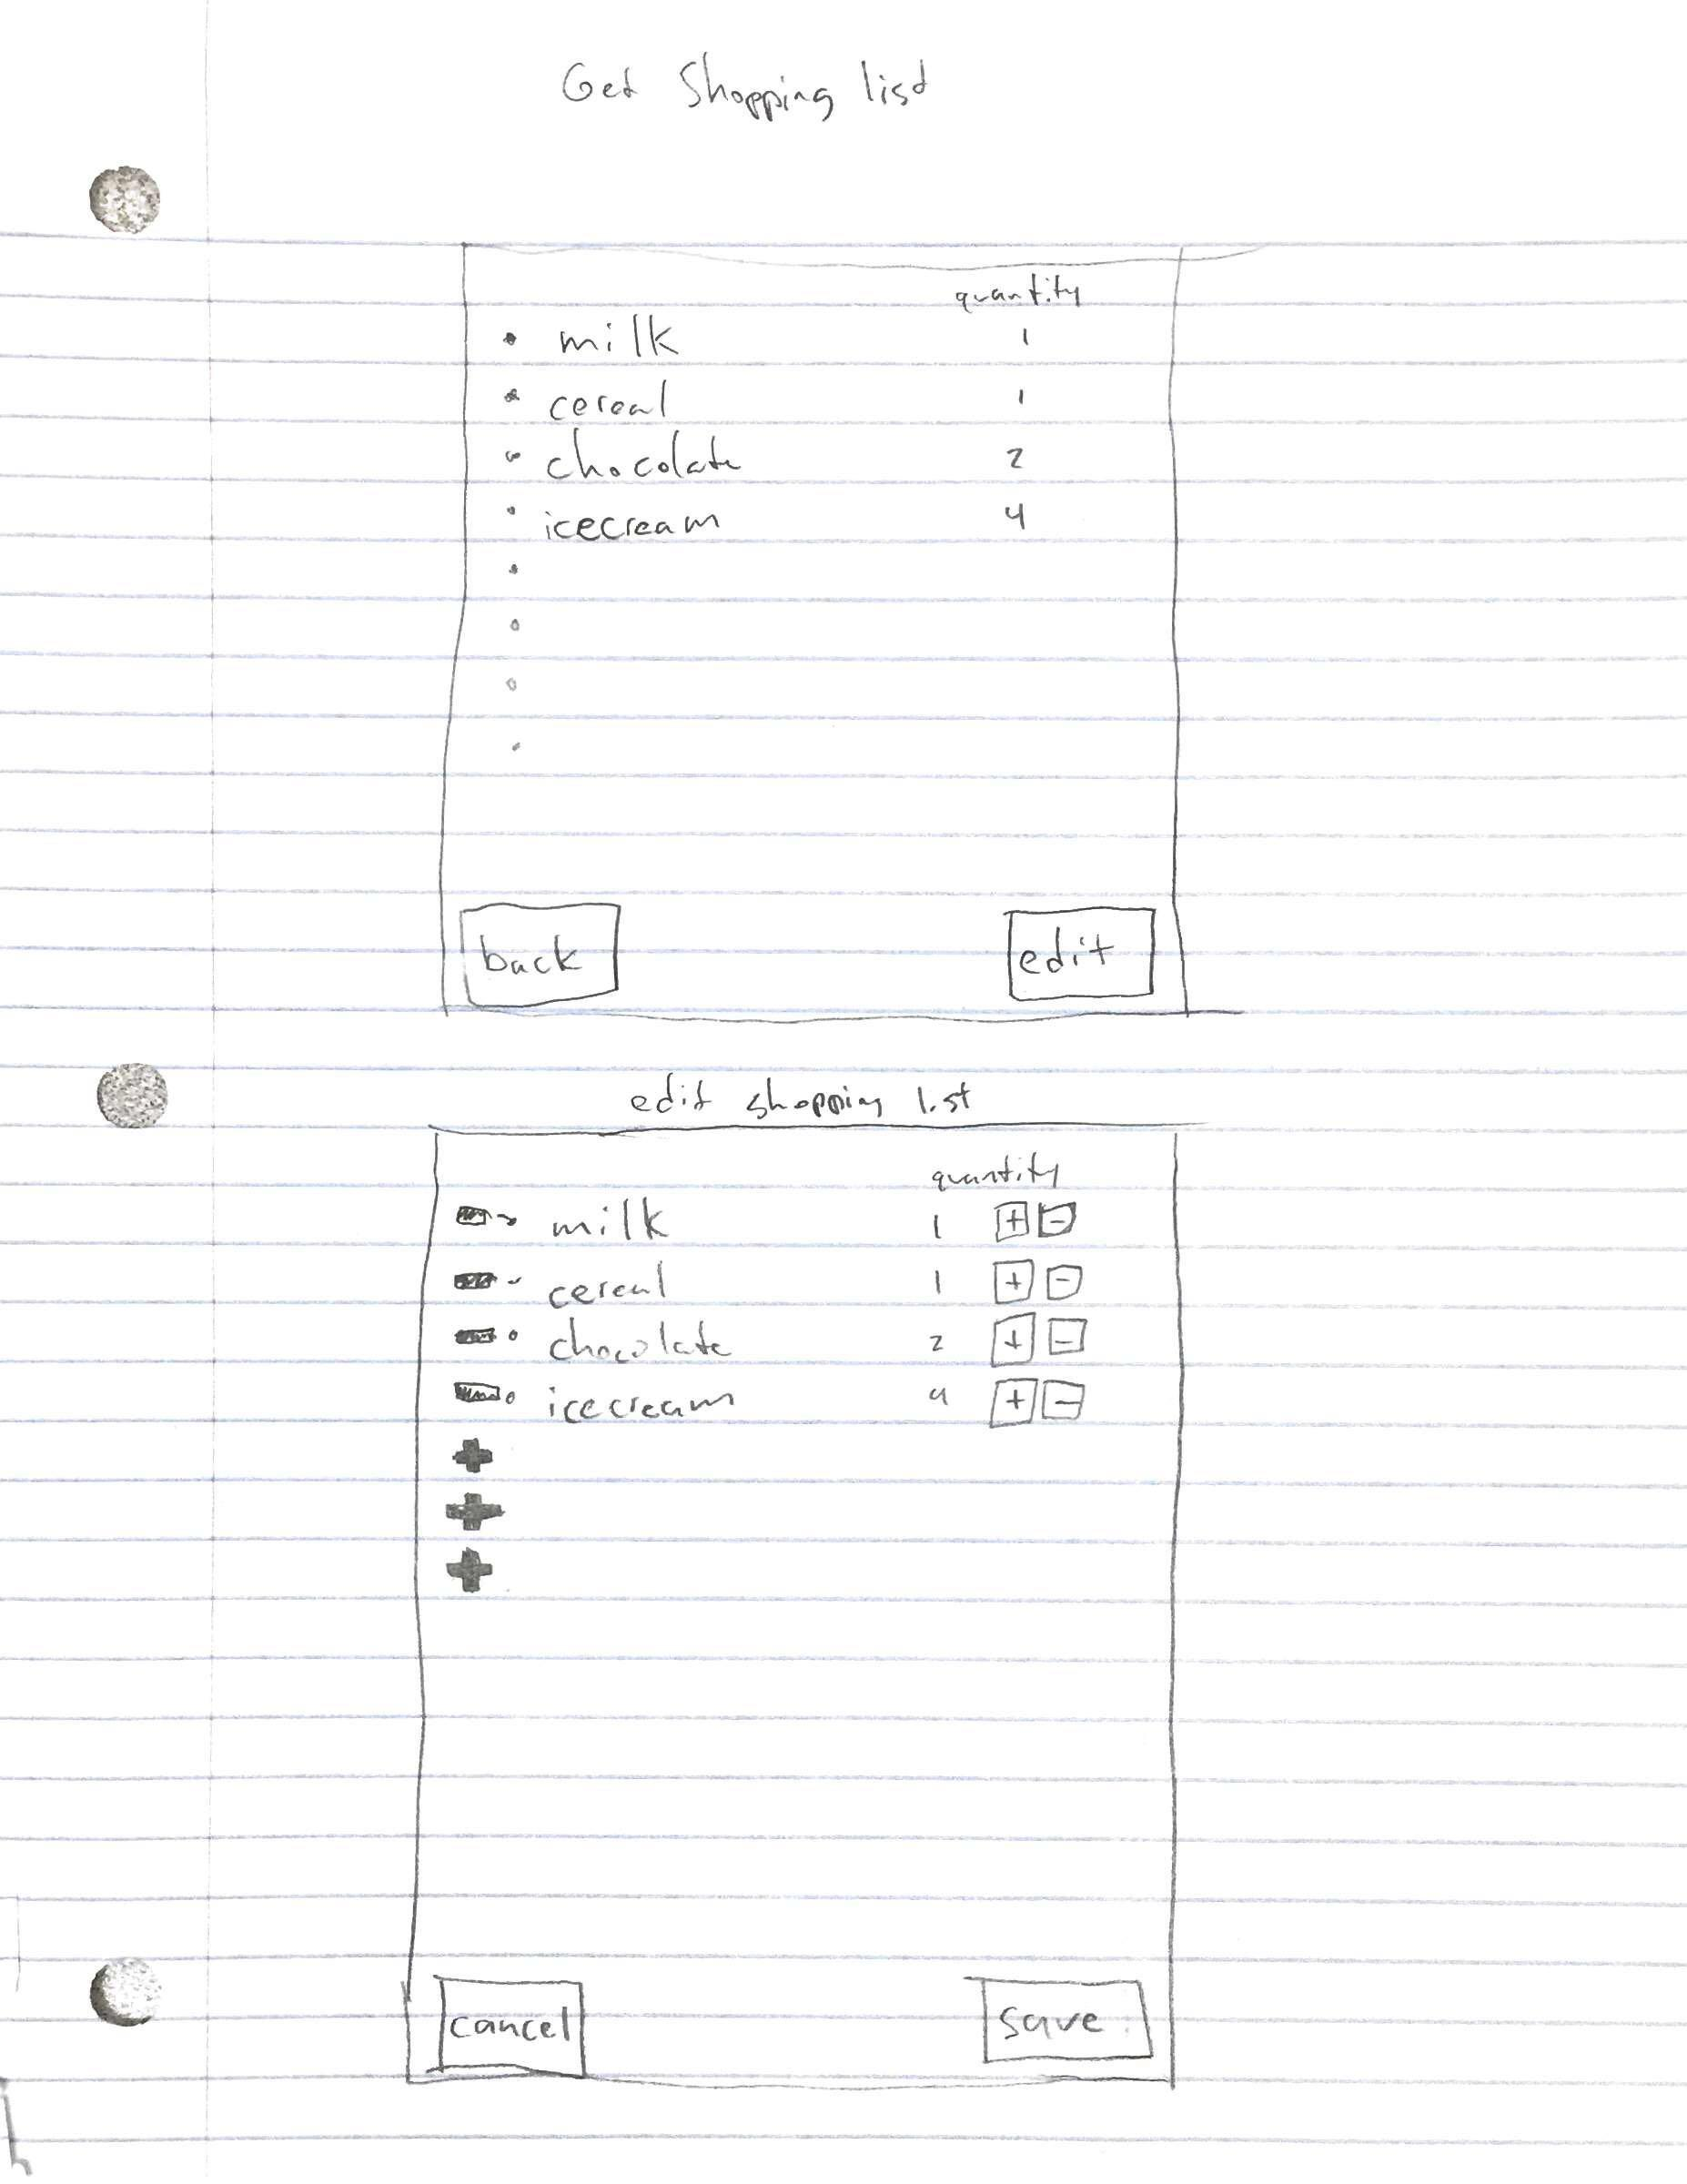 Get Shopping list
quantity
• milk 1
• cereal 1
• chocolate 2
• icecream 4
•
•
•
•
back edit
edit shopping list
quantity
milk 1 + -
cereal 1 + -
chocolate 2 + -
icecream 4 + -
+
+
+
cancel save